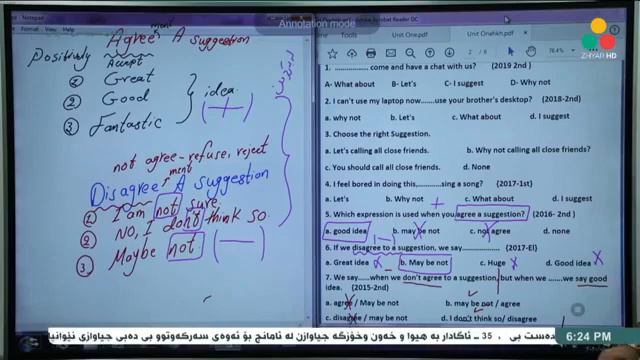 Annotation mode
ZHYAR HD
Notepad
Acrobat Reader DC
Unit One.pdf
Unit Onehkh.pdf
78.4%
ment
Positively
Agree A suggestion
Accept
① Great
② Good
③ Fantastic
idea
(+)
not agree - refuse, reject
ment
Disagree A suggestion
① I am not sure.
② No, I don't think so.
③ Maybe not (—)
1. .................. come and have a chat with us? (2019 2nd )
A- What about B- Let's C- I suggest D- Why not
2. I can't use my laptop now........use your brother's desktop? (2018-2nd)
a. why not b. Let's c. What about d. I suggest
3. Choose the right Suggestion.
a. Let's calling all close friends? b. Why not calling all close friends?
c. You should call all close friends. d. None
4. I feel bored in doing this,..................sing a song? (2017-1st)
a. Let's b. Why not + c. What about d. I suggest
5. Which expression is used when you agree a suggestion? (2016- 2nd )
a. good idea b. may be not c. no agree d. none
6. If we disagree to a suggestion, we say............ (2017-El)
a. Great idea b. May be not c. Huge d. Good idea
7. We say......when we don't agree to a suggestion, but when we ...... we say good
idea. (2015-2nd)
a. agree / May be not b. may be not / agree
c. disagree / may be not d. I don't think so/ disagree
35 ـ ئاگادار به هیوا و خەون وخۆزگە جیاوازن لە ئامانج بۆ ئەوەی سەرکەوتوو بی دەبی جیاوازی نێوانیان
دەست بی .
6:24 PM